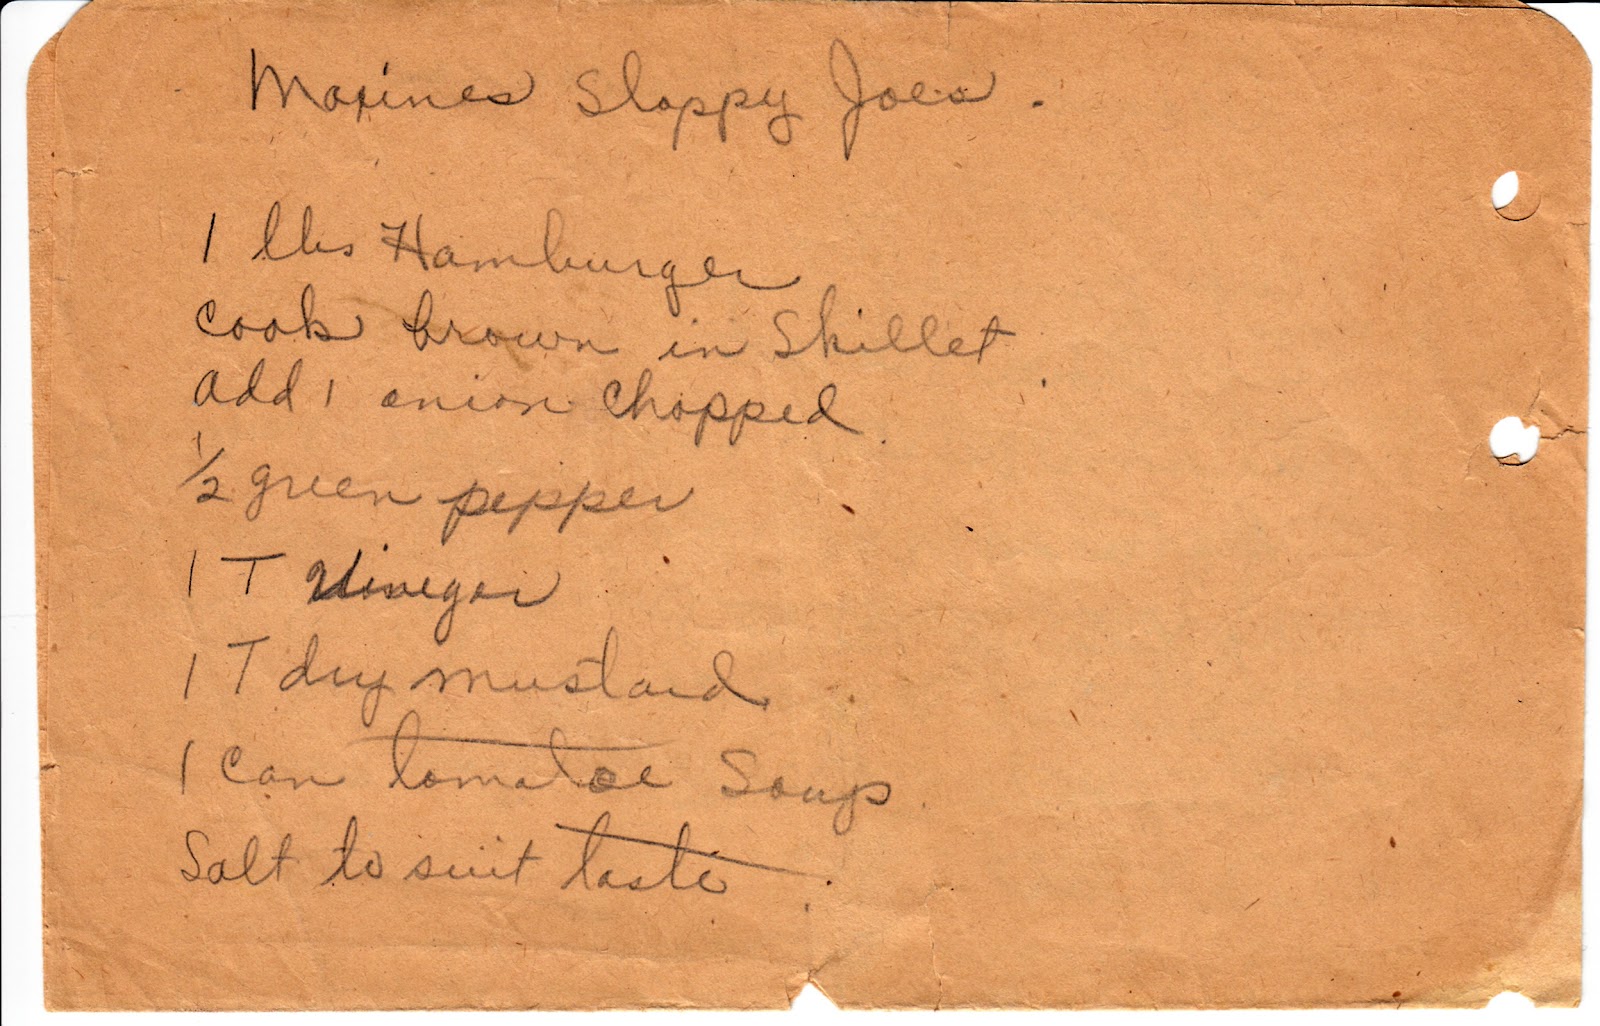 Maxines Sloppy Joes.
1 lbs Hamburger
cook brown in Skillet.
add 1 onion chopped.
1/2 green pepper
1 T Vinegar
1 T dry mustard
1 can tomatoe Soup.
Salt to suit taste.